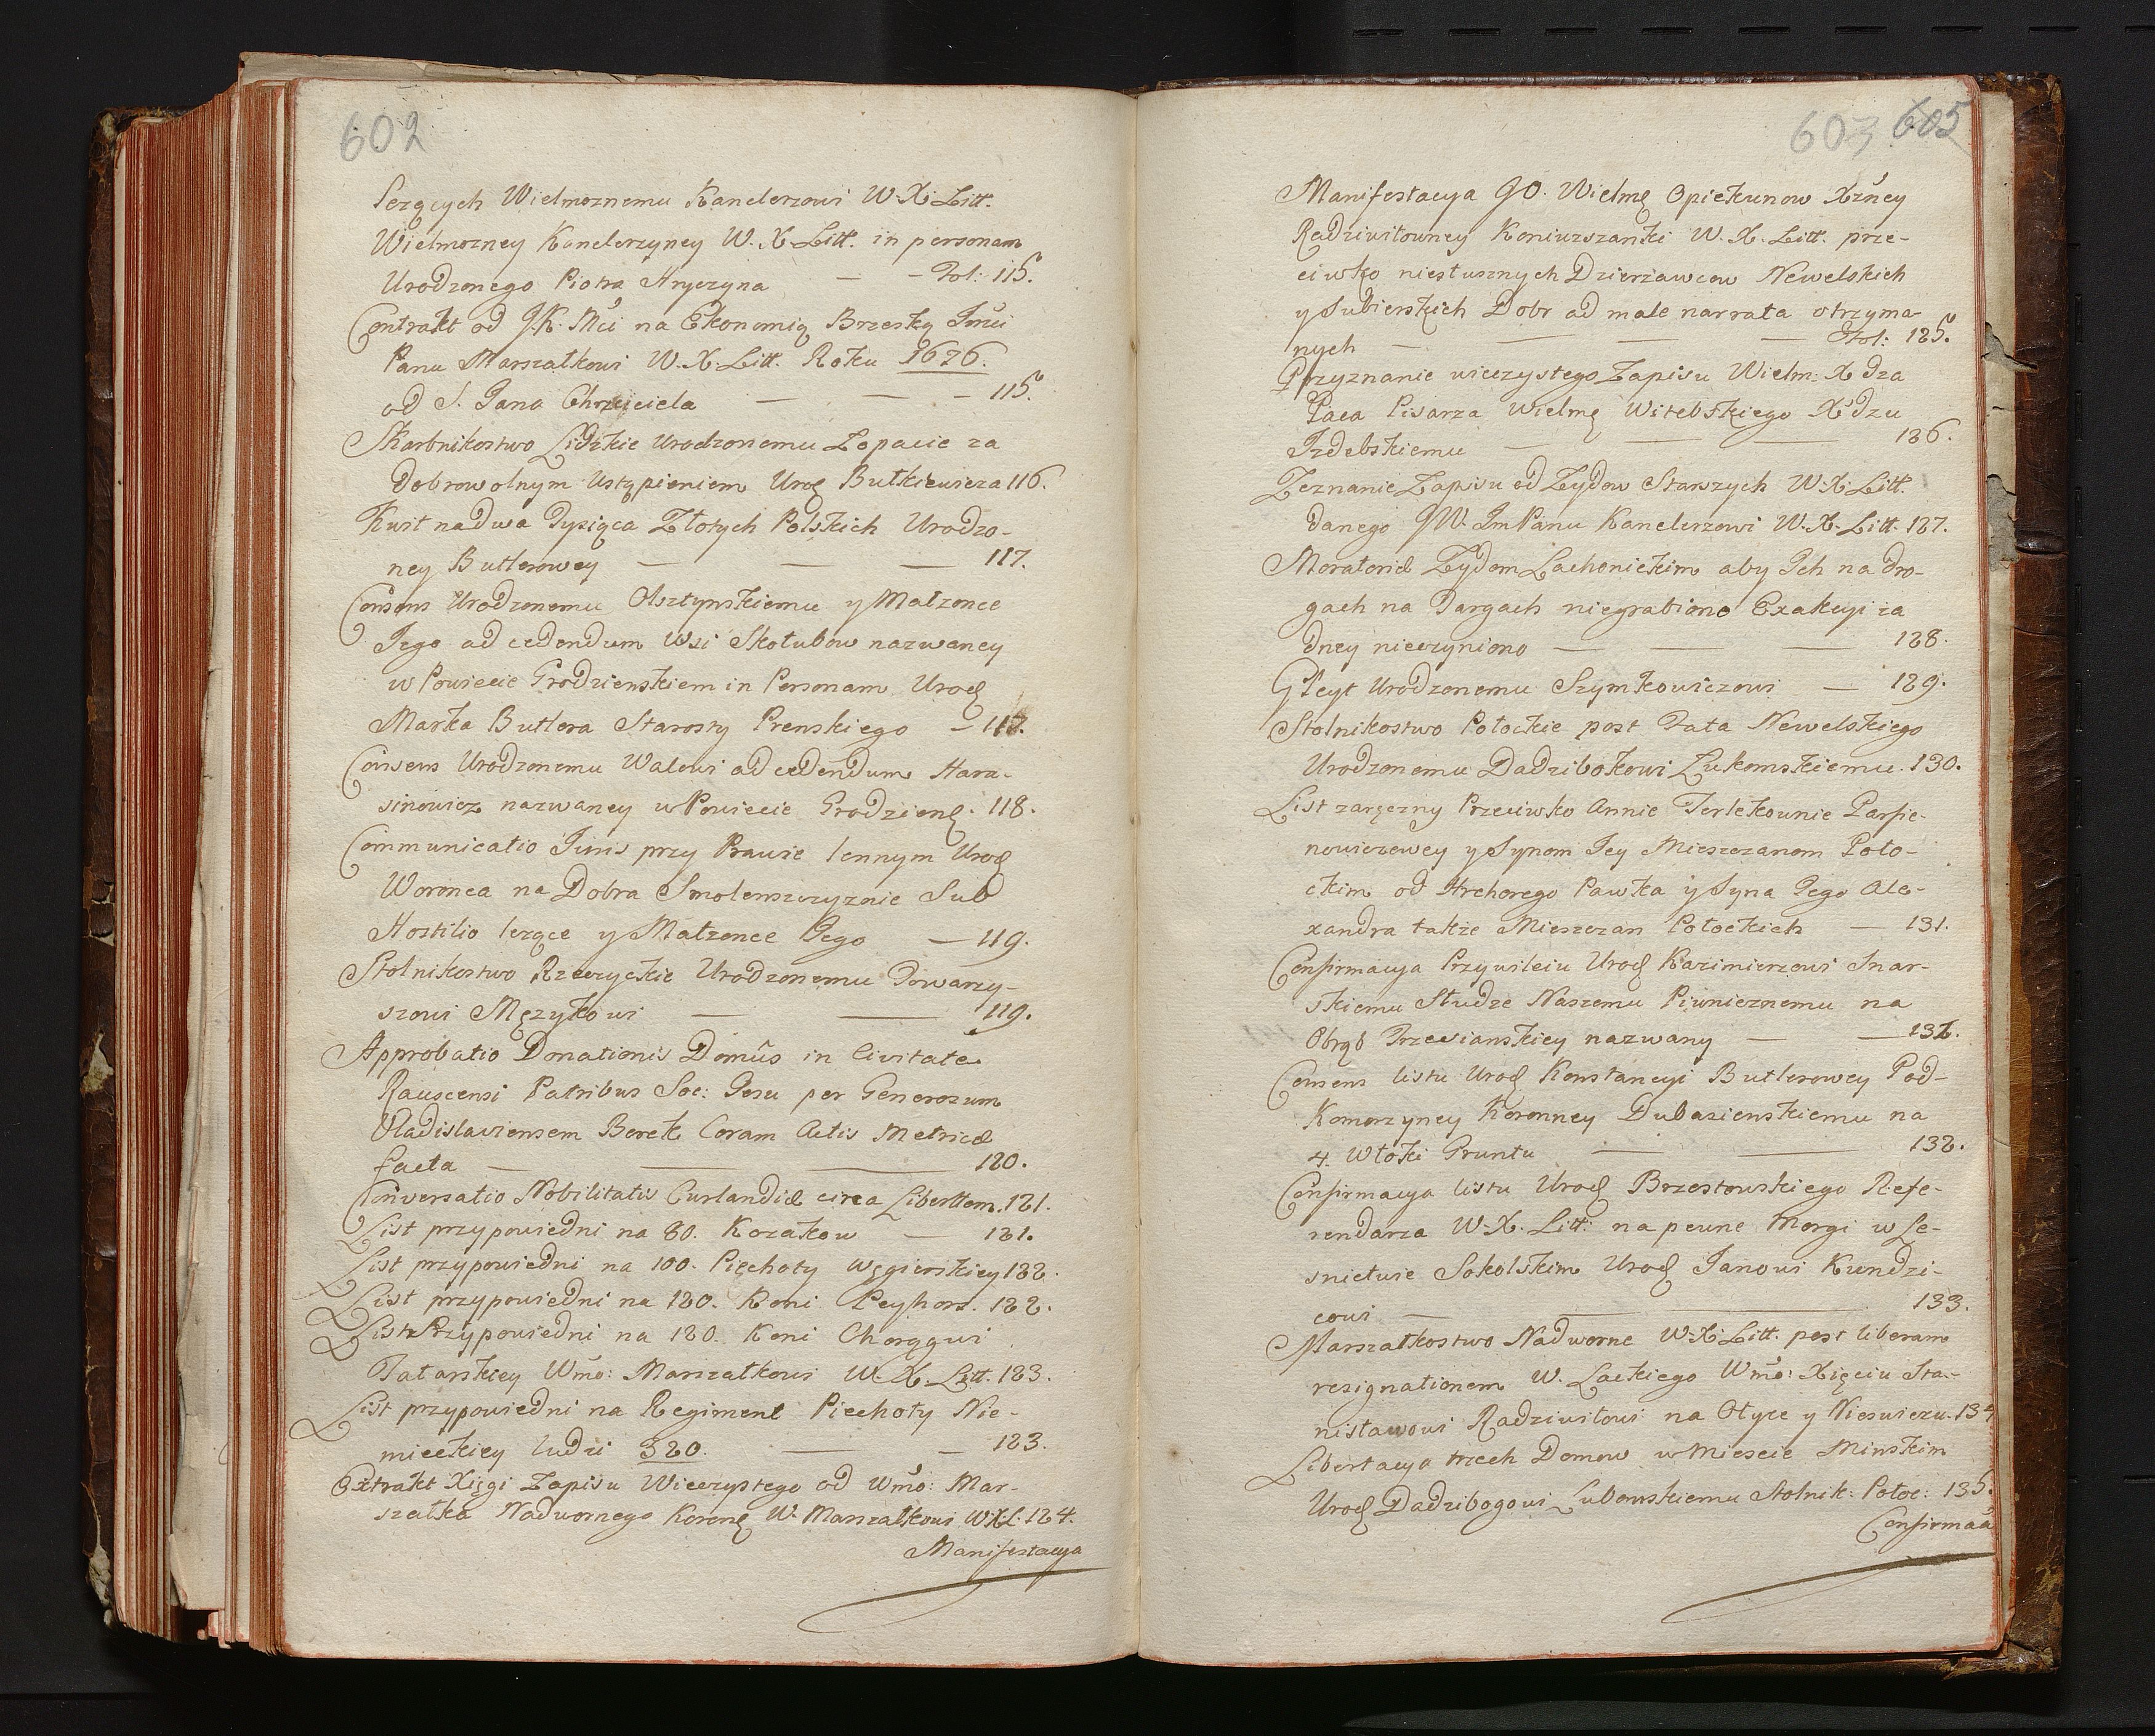 602
leżących Wielmoznemu Kanclerzowi W. X. Litt.
Wielmozney Kanclerzyney W. X. Litt. in personam
Urodzonego Piotra Hryczyna — — Fol: 115.
Contrakt od J. K. Mći na Ekonomią Brzeską Jmći
Panu Marszałkowi W. X. Litt. Roku 1676.
od S. Jana Chrzciciela — — — 115.
Skarbnikostwo Lidzkie Urodzonemu Łopacie za
dobrowolnym ustąpieniem Urod Butkiewicza 116.
Kwit na dwa Tysiąca Złotych Polskich Urodzo-
ney Butlerowey — — — 117.
Consens Urodzonemu Olsztynskiemu y Małzonce
Jego ad cedendum Wsi Skotubow nazwaney
w Powiecie Grodzienskiem in Personam Urod
Marka Butlera Starosty Prenskiego — 117.
Consens Urodzonemu Walowi ad cedendum Hara-
sinowicz nazwaney w Powiecie Grodzienś. 118.
Communicatio Juris przy Prawie lennym Urod
Woronca na Dobra Smolenszczyznie Sub
Hostilio leżące y Małzonce Jego — 119.
Stolnikostwo Rzeczyckie Urodzonemu Towarzy-
szowi Męzykowi — — 119.
Approbatio Donationis Domûs in Civitate
Rauscensi Patribus Soc: Jesu per Generosum
Vladislaviensem Berek Coram Actis Metricæ
facta — — 120.
Conversatio Nobilitatis Curlandiæ circa Liberttem. 121.
List przypowiedni na 80. Kozakow — 121.
List przypowiedni na 100. Piechoty Węgierskiey 122.
List przypowiedni na 120. Koni Peyhor. 122.
List Przypowiedni na 120. Koni Chorągwi
Tatarskiey Wmo: Marszałkowi W. X. Litt. 123.
List przypowiedni na Regiment Piechoty Nie-
mieckiey ludzi 320. — — 123.
Extrakt Xięgi Zapisu Wieczystego od Wmo: Mar-
szałka Nadwornego Koronę W. Marszałkowi W.X.L. 124.
Manifestacya
603 605
Manifestacya JO. Wielmę Opiekunow Xżney
Radziwiłowney Koniuszanki W. X. Litt. prze-
ciwko niesłusznych Dzierżawcow Newelskich
y Subierskich Dobr ad male narrata otrzyma-
nych — — — — Fol: 125.
Przyznanie wieczystego Zapisu Wielm: X dza
Paca Pisarza Wielmę Witebskiego X dzu
Izdebskiemu — — — 126.
Zeznanie Zapisu od Zydow Starszych W. X. Litt.
danego JW. Jm Panu Kanclerzowi W. X. Litt. 127.
Moratoriæ Zydom Lachonickim aby Ich na dro-
gach na Targach niegrabiono Exakcyi za
dney nieczyniono — — — 128.
Gleyt Urodzonemu Szymkowiczowi — 129.
Stolnikostwo Połockie post Fata Newelskiego
Urodzonemu Dadzibokowi Łukomskiemu. 130.
List zaręczny Przeciwko Annie Terlekownie Parfie-
nowiczewey y Synom Jey Mieszczanom Poło-
ckim od Hrehorego Pawka y Syna Jego Ale-
xandra także Mieszczan Połockich — 131.
Confirmacya Przywileiu Urod Kazimierzowi Snar-
skiemu Słudze Naszemu Piwnicznemu na
Obrąb Przewianskiey nazwany — — 132.
Consens listu Urod Konstancyi Butlerowey Pod-
Komorzyney Koronney Dubasienskiemu na
4. Włoki Gruntu — — 132.
Confirmacya listu Urod Brzestowskiego Refe-
rendarza W. X. Litt: na pewne Morgi w Le-
snictwie Sokolskim Urod Janowi Kundzi-
cowi — — — 133.
Marszałkostwo Nadworne W. X. Litt. post liberam
resignationem W. Lackiego Wmo: Xięciu Sta-
nisławowi Radziwiłowi na Ołyce y Nieswiezu. 134
Libertacya trzech Domow w Miescie Minskim
Urod Dadzibogowi Lubowskiemu Stolnik: Połoc: 135.
Confirmaā